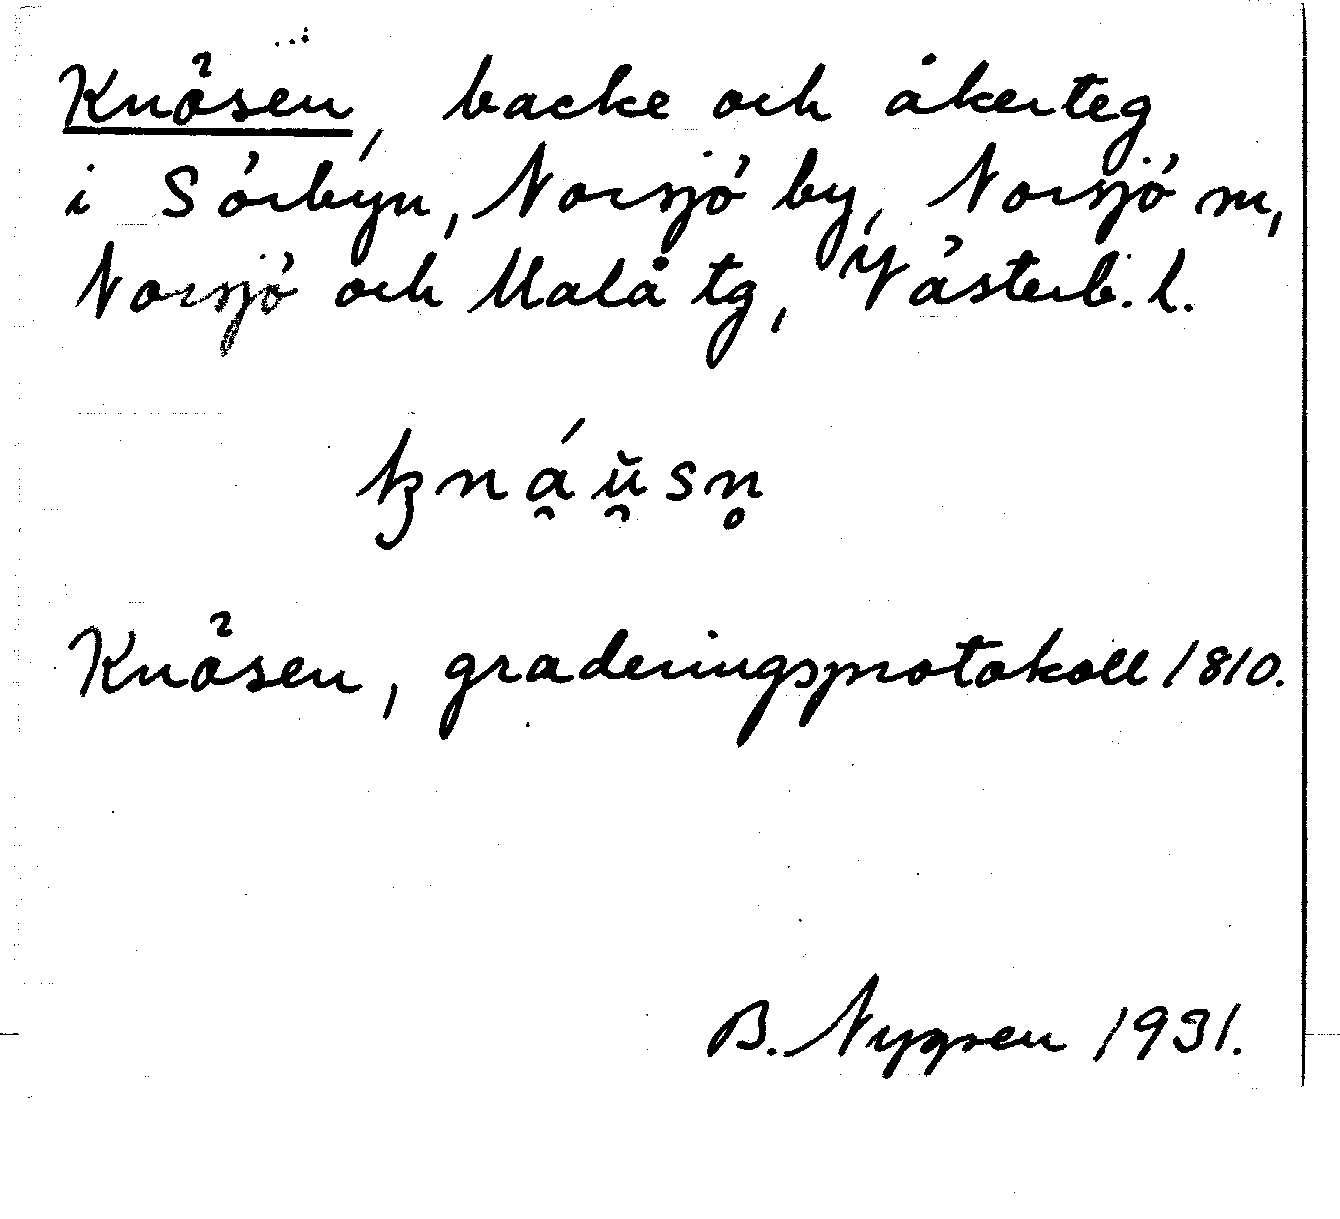 Knösen, backe och åkerteg
i Sörbyn, Norsjö by, Norsjö sn,
Norsjö och Malå tg, Västerb. l.
ꝁná̯ŭ̯sn̥
Knösen, graderingsprotokoll 1810.
B. Nygren 1931.